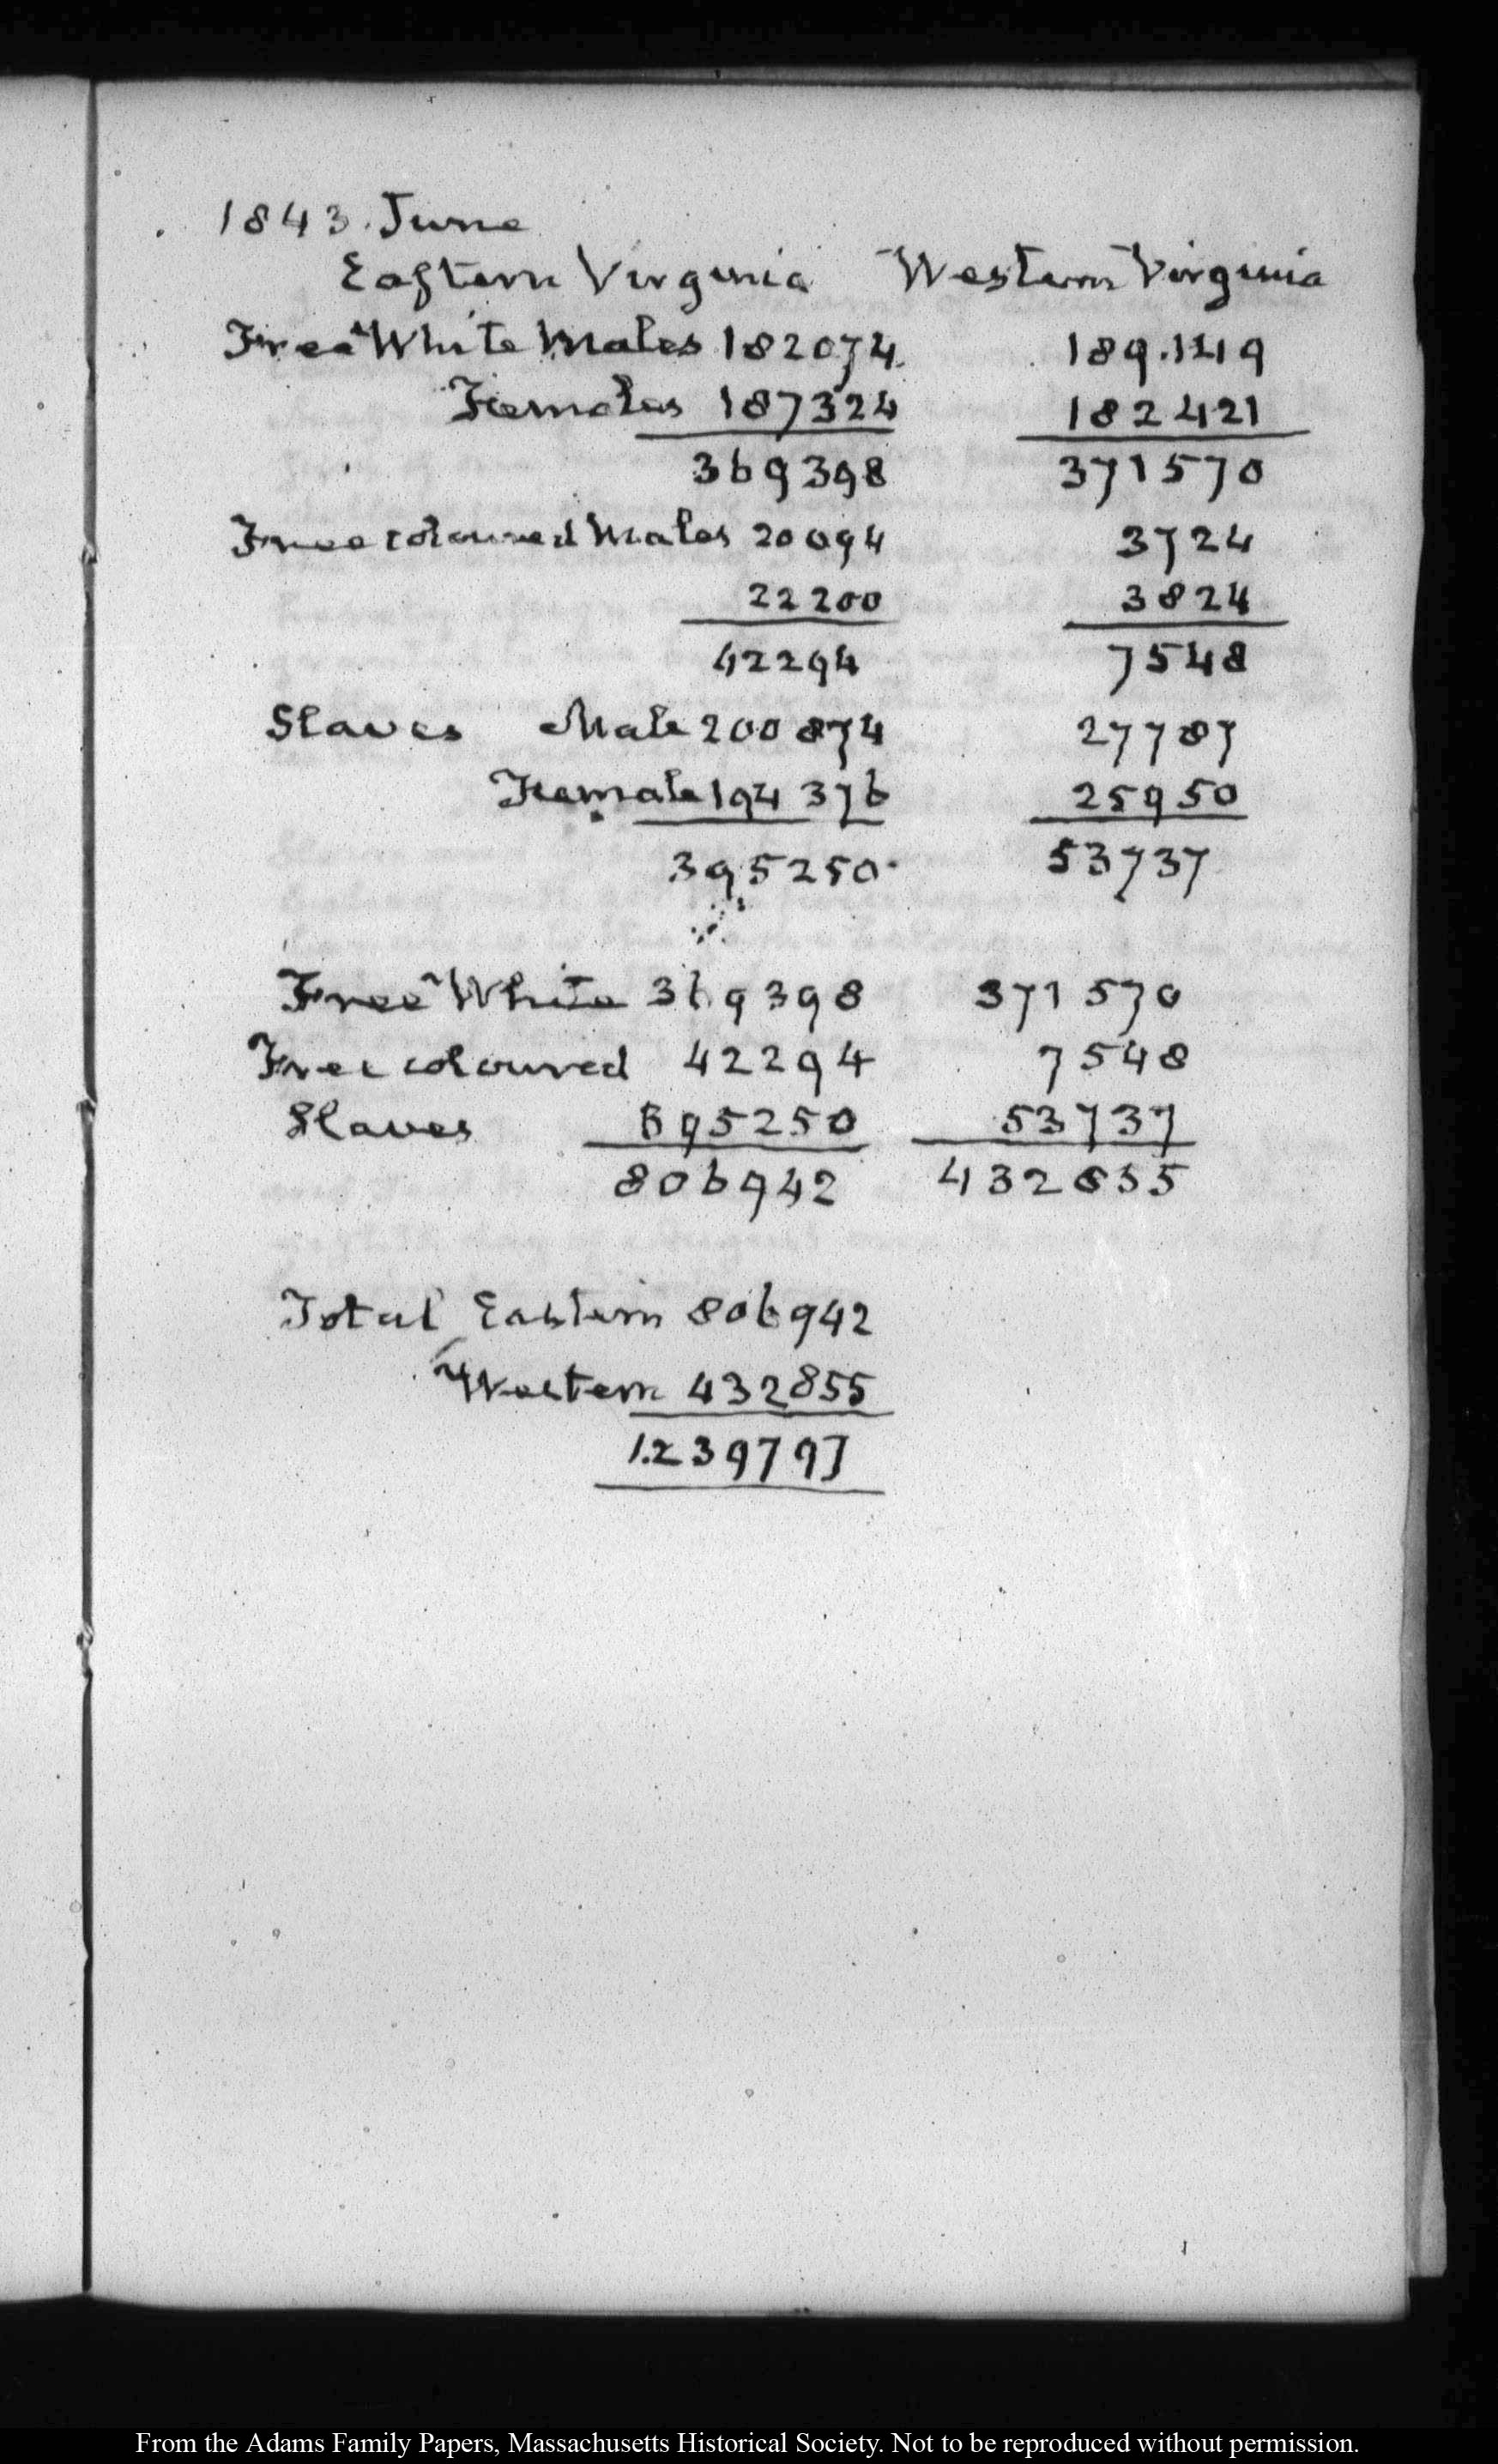 1843. June
Eastern Virginia Western Virginia
Free White Males 182074. 189.149
Females 187324 182421
369398 371570
Free coloured Males 20094 3724
22200 3824
42294 7548
Slaves Male 200874 27787
Female 194376 25950
395250. 53737
Free White 369398 371570
Free coloured 42294 7548
Slaves 395250 53737
806942 432855
Total Eastern 806942
Western 432855
1.239797
From the Adams Family Papers, Massachusetts Historical Society. Not to be reproduced without permission.